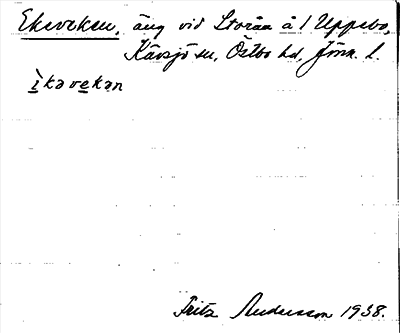 Ekeveken, äng vid Storån å 1 Uppebo,
Kävsjö sn, Östbo hd, Jönk. l.
ìkavekan
Fritz Andersson 1938.